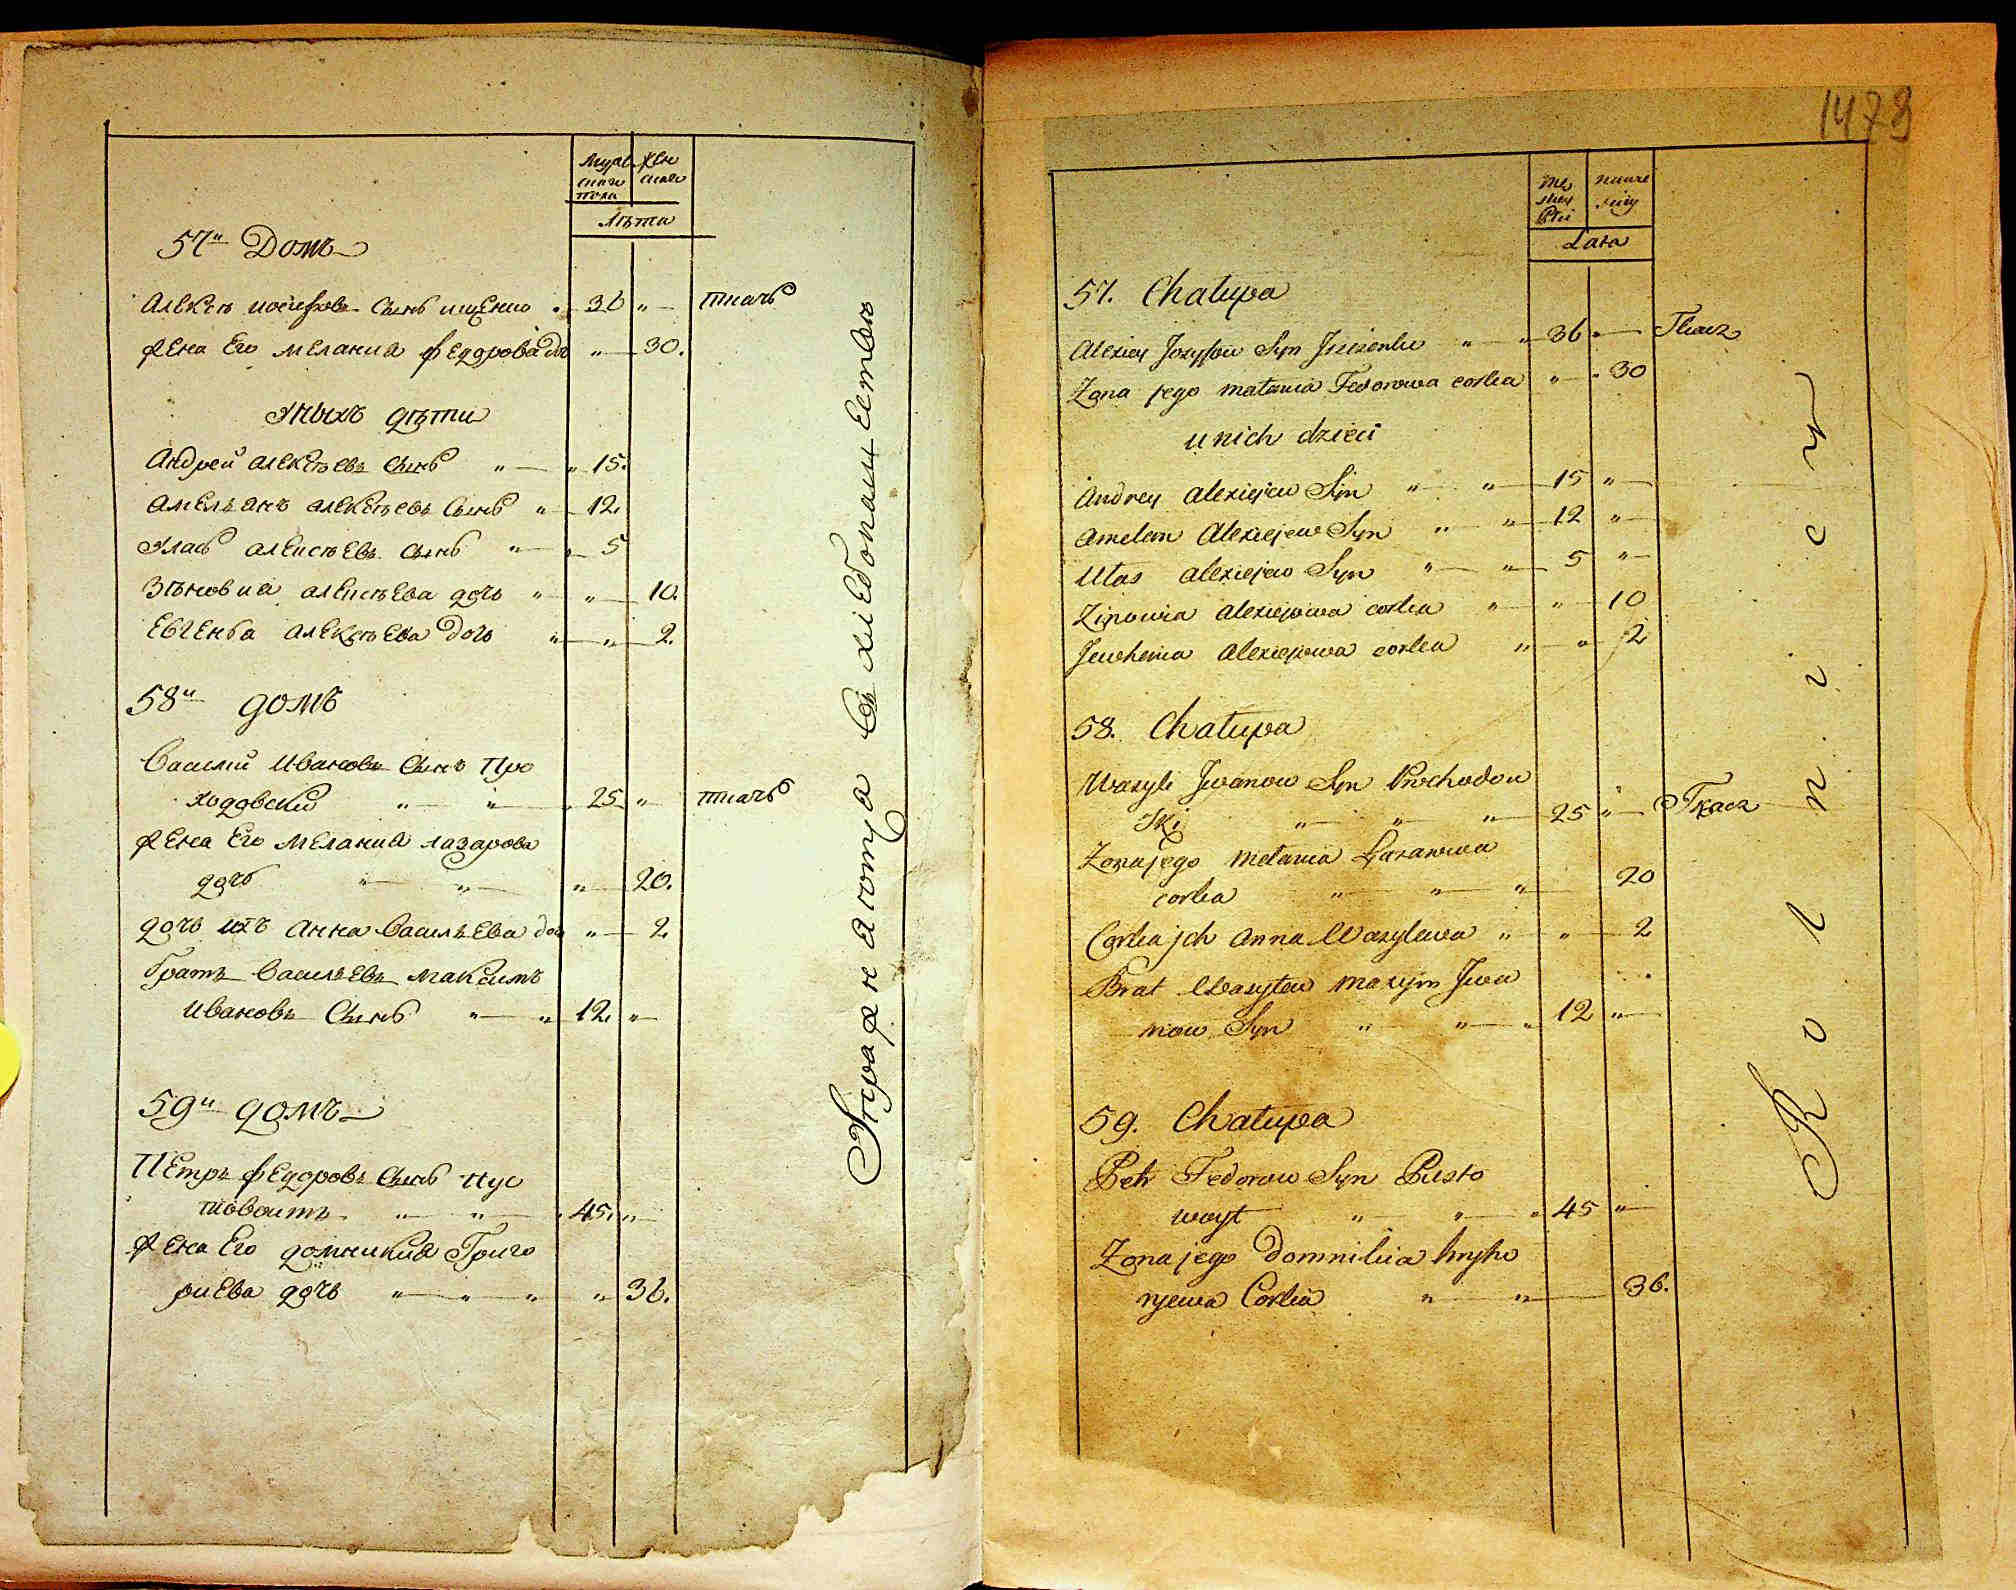 Мужескаго пола
Женскаго
Лѣта
57й Домъ
Алексѣй Иосифовъ Сынъ Ищенко " 36 " ткачъ
Жена Его Мелания Федорова дочь " 30.
У ныхъ дѣти
Андрей Алексѣевъ Сынъ " " 15.
Амельянъ Алексѣевъ Сынъ " 12.
Улас Алексѣевъ Сынъ " " 5
Зѣновия Алексѣева дочь " " 10.
Евгенья Алексѣева дочь " " 2.
58й домъ
Василий Ивановъ Сынъ Про
ходовский " " 25 " ткачъ
Жена Его Мелания Лазарова
дочь " " " 20.
дочь ихъ Анна Васильева дочь " 2.
братъ Васильевъ Максимъ
Ивановъ Сынъ " " 12. "
59й домъ
Петръ Федоровъ Сынъ Пус
товоитъ " " 45. "
Жена Его Домникия Григо
риева дочь " " " " 36.
хлѣбопашествомъ
1473
Męskiey Płci
Lata
57. Chałupa
Alexiey Jozyfow Syn Jszczenko " " 36 " Tkacz
Zona jego Małania Fedorowa corka " " 30
u nich dzieci
Andrey Alexiejew Syn " " 15 "
Amelan Alexiejew Syn " " 12 "
Ułas Alexiejew Syn " " 5 "
Zinowia Alexiejowa corka " " 10
Jewhenia Alexiejowa corka " " 2
58. Chałupa
Wasyli Jwanow Syn Prochodow
ski " " " 25 " Tkacz
Zona jego Mełania Łazarowa
corka " " " 20
Corka jch Anna Wasylewa " " 2
Brat Wasylew Maxym Jwa
now Syn " " " 12 "
59. Chałupa
Petr Fedorow Syn Pusto
woyt " " " 45 "
Zona jego Domnikia Hryho
ryewa Corka " " 36.
Rolnicy